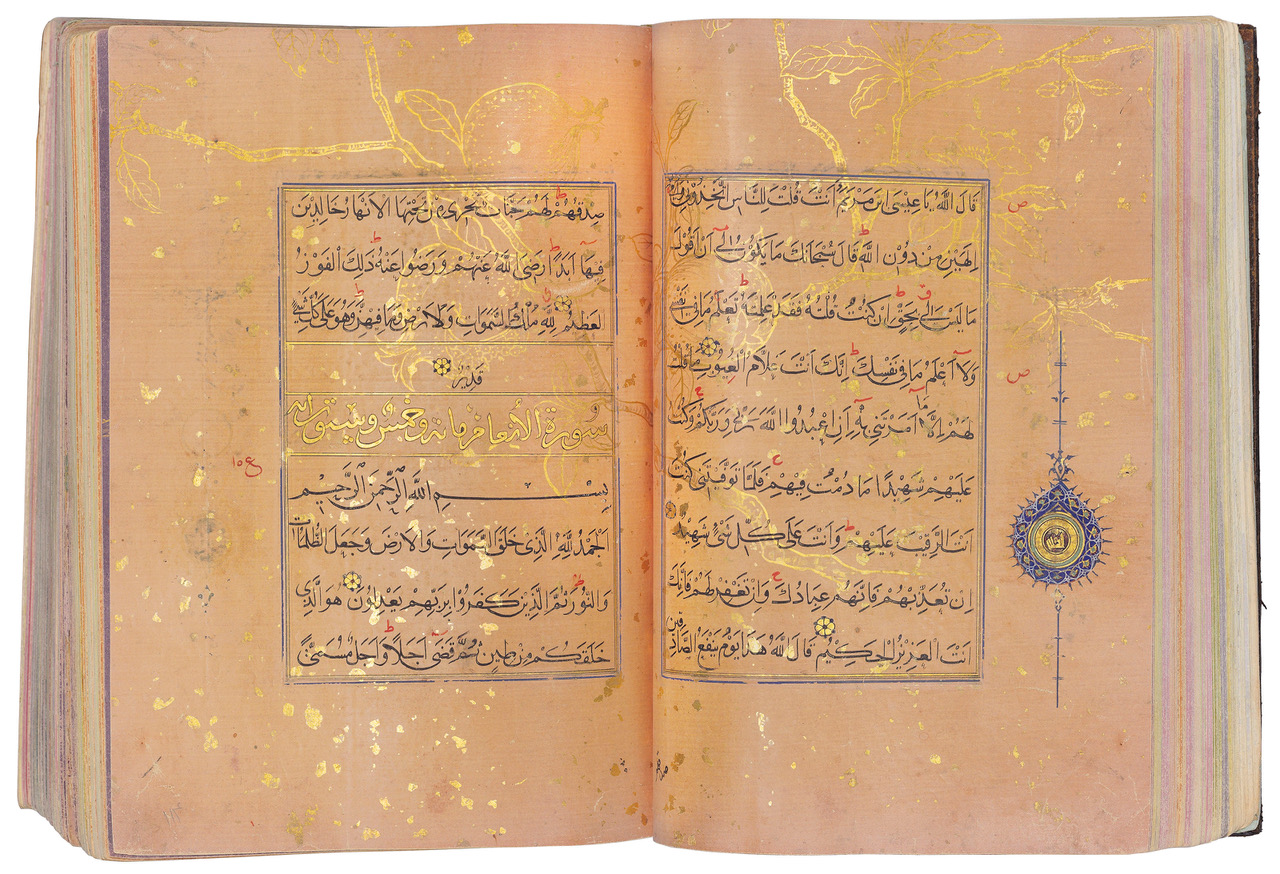 قَالَ اللّٰهُ يَا عِيسَى ابْنَ مَرْيَمَ أَنْتَ قُلْتَ لِلنَّاسِ اتَّخِذُونِي وَأُمِّيَ
إِلٰهَيْنِ مِنْ دُونِ اللّٰهِ قَالَ سُبْحَانَكَ مَا يَكُونُ لِي أَنْ أَقُولَ
مَا لَيْسَ لِي بِحَقٍّ إِنْ كُنْتُ قُلْتُهُ فَقَدْ عَلِمْتَهُ تَعْلَمُ مَا فِي نَفْسِي
وَلَا أَعْلَمُ مَا فِي نَفْسِكَ إِنَّكَ أَنْتَ عَلَّامُ الْغُيُوبِ مَا قُلْتُ
لَهُمْ إِلَّا مَا أَمَرْتَنِي بِهِ أَنِ اعْبُدُوا اللّٰهَ رَبِّي وَرَبَّكُمْ وَكُنْتُ
عَلَيْهِمْ شَهِيدًا مَا دُمْتُ فِيهِمْ فَلَمَّا تَوَفَّيْتَنِي كُنْتَ
أَنْتَ الرَّقِيبَ عَلَيْهِمْ وَأَنْتَ عَلَى كُلِّ شَيْءٍ شَهِيدٌ
إِنْ تُعَذِّبْهُمْ فَإِنَّهُمْ عِبَادُكَ وَإِنْ تَغْفِرْ لَهُمْ فَإِنَّكَ
أَنْتَ الْعَزِيزُ الْحَكِيمُ قَالَ اللّٰهُ هٰذَا يَوْمُ يَنْفَعُ الصَّادِقِينَ
صِدْقُهُمْ لَهُمْ جَنَّاتٌ تَجْرِي مِنْ تَحْتِهَا الْأَنْهَارُ خَالِدِينَ
فِيهَا أَبَدًا رَضِيَ اللّٰهُ عَنْهُمْ وَرَضُوا عَنْهُ ذٰلِكَ الْفَوْزُ
الْعَظِيمُ لِلّٰهِ مُلْكُ السَّمٰوَاتِ وَالْأَرْضِ وَمَا فِيهِنَّ وَهُوَ عَلَى كُلِّ شَيْءٍ
قَدِيرٌ
سورة الأنعام مائة وخمس وستون آية
بِسْمِ اللّٰهِ الرَّحْمٰنِ الرَّحِيمِ
الْحَمْدُ لِلّٰهِ الَّذِي خَلَقَ السَّمٰوَاتِ وَالْأَرْضَ وَجَعَلَ الظُّلُمَاتِ
وَالنُّورَ ثُمَّ الَّذِينَ كَفَرُوا بِرَبِّهِمْ يَعْدِلُونَ هُوَ الَّذِي
خَلَقَكُمْ مِنْ طِينٍ ثُمَّ قَضَى أَجَلًا وَأَجَلٌ مُسَمًّى